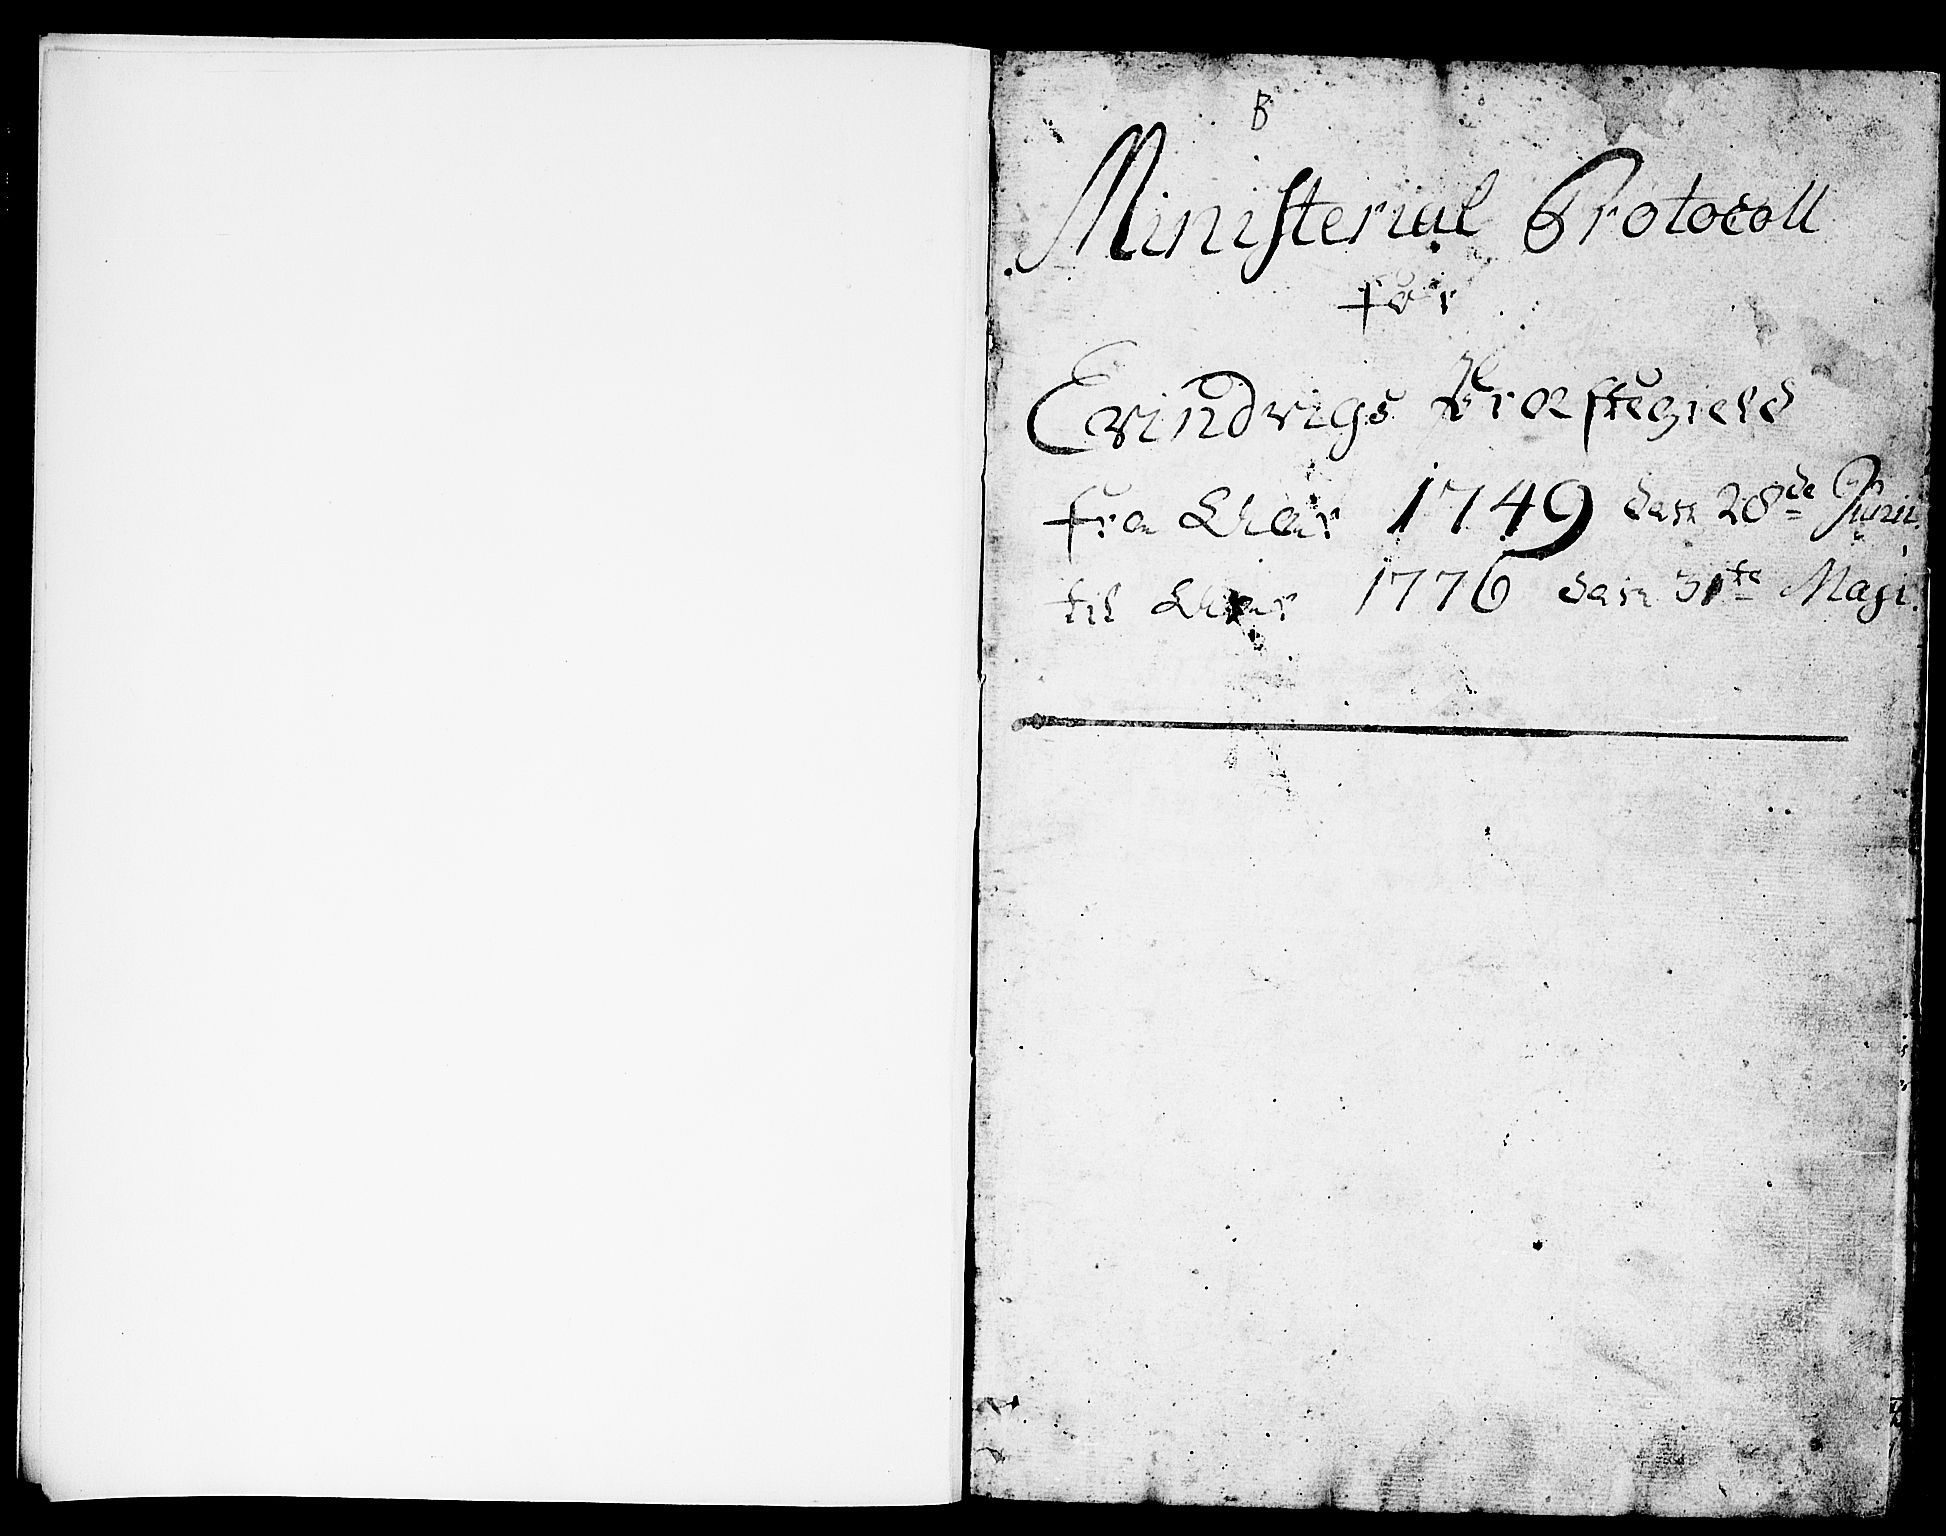 B
Ministerial Protocoll
for
Evindvigs Præstegield
fra Ao̅ar 1749 den 28de Junii.
til 1776 den 31te Maji.